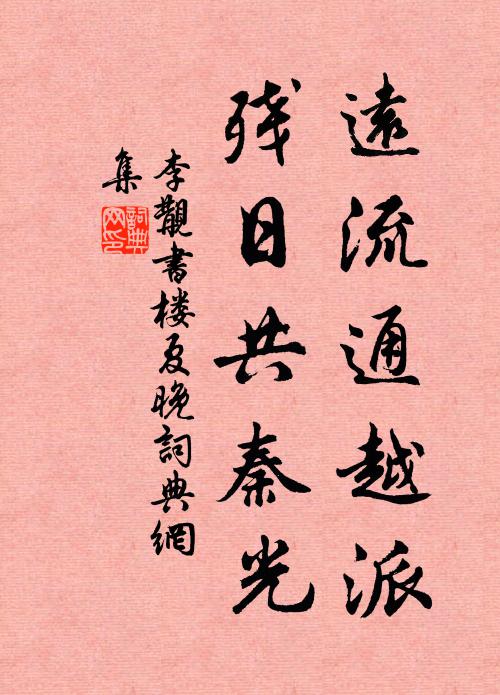 遠流通越派
残日共秦光
李觏書楼夏晚詞典網
集
詞典
网印